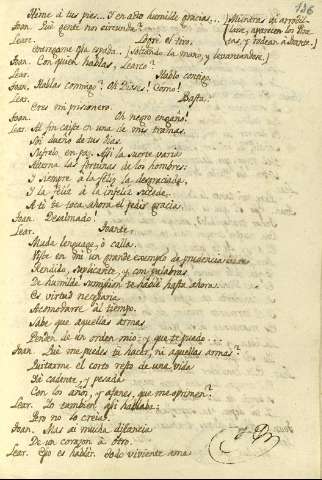 126
Véme á tus pies... Y en acto humilde gracias... (Mientras se arrodi-
Ivan. Qué gente nos circunda? llare, aparecen los
Lear. Logré el tiro. y rodean á Ivante.)
Entregame esa espada. (Soltando la mano, y levantandose.)
Ivan. Con quien hablas, Learco?
Lear. Hablo contigo.
Ivan. Hablas conmigo? Oh Dioses! Como!
Lear. Basta.
Eres mi prisonero.
Ivan. Oh negro engaño!
Lear. Al fin caiste en una de mis tramas.
Soi dueño de tus dias.
Sufrelo en paz. Asi la suerte varia
Alterna las fortunas de los hombres:
Y siempre á la feliz la desgraciada,
Y la feliz á la infeliz sucede.
A ti te toca ahora el pedir gracia.
Ivan. Desalmado!
Lear. Ivante:
Muda lenguage, ó calla.
Viste en mi un grande exemplo de prudencia
Rendido, suplicante, y con palabras
De humilde sumision te hablé hasta ahora.
Es virtud necesaria
Acomodarse al tiempo.
Sabe que aquellas armas
Penden de un orden mio: y que te puedo...
Ivan. Qué me puedes tu hacer, ni aquellas armas?
Quitarme el corto resto de una vida
Yá cadente, y pesada
Con los años, y afanes, que me oprimen?
Lear. Yo tambien asi hablabe:
Pero no lo creia.
Ivan. Mas ai mucha distancia
De un corazon á otro.
Lear. Eso es hablar. Todo viviente ama